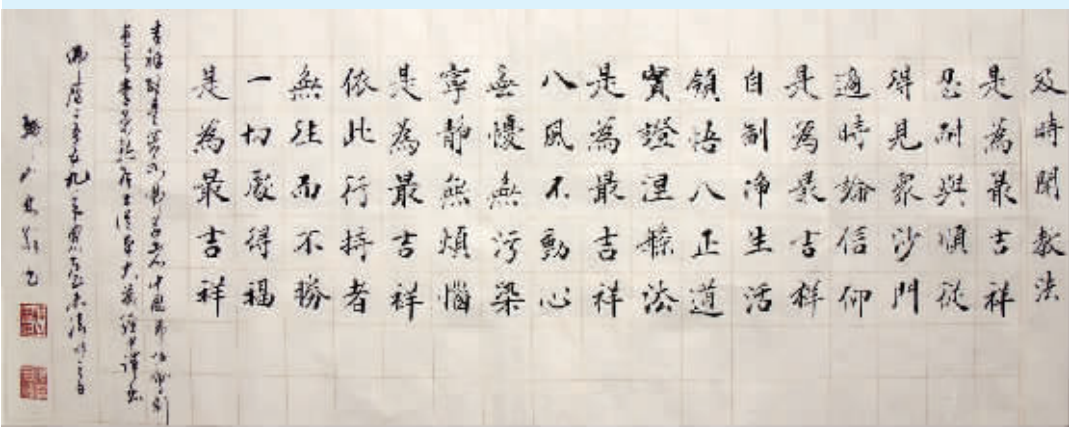 及時聞教法
是為最吉祥
忍耐與順從
得見眾沙門
適時論信仰
是為最吉祥
自制淨生活
領悟八正道
實證涅槃法
是為最吉祥
八風不動心
無憂無污染
寧靜無煩惱
是為最吉祥
依此行持者
無往而不勝
一切處得福
是為最吉祥
佛曆二五五九年